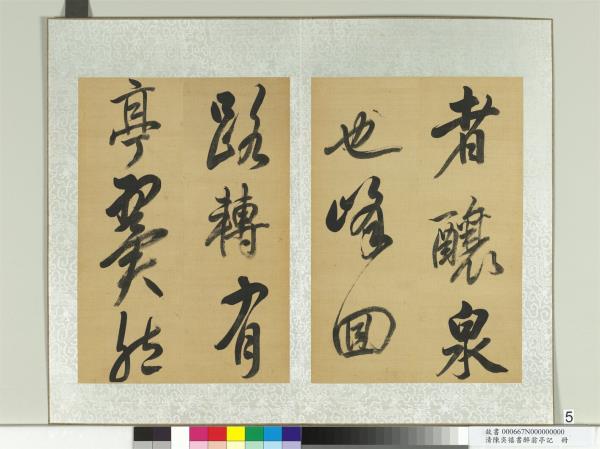 者釀泉
也峰回
路轉有
亭翼然
5
故書000667N000000000
清陳奕禧書醉翁亭記 冊